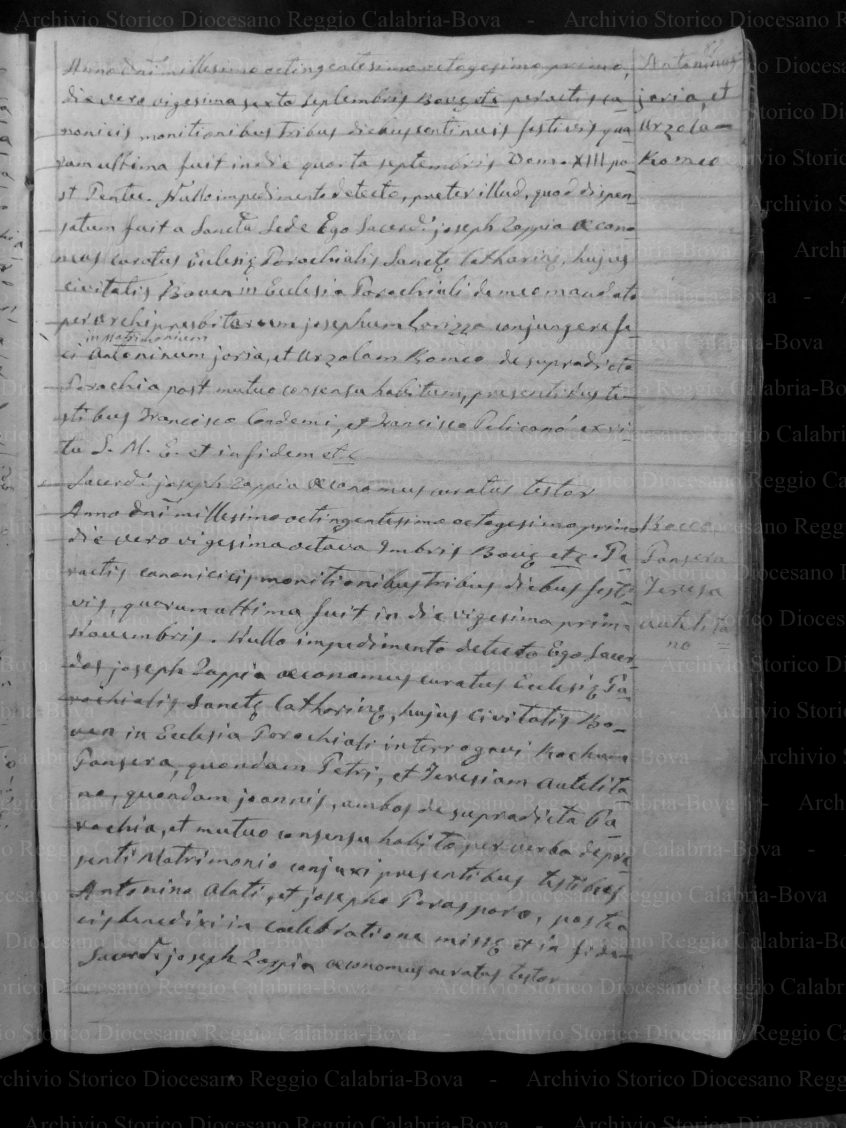 Anno dñi millesimo octingentesimo octogesimo primo,
die vero vigesima sexta septembris Bovę etc peractis ca=
nonicis monitionibus tribus diebus continuis festivis qua=
rum ultima fuit in die quarta septembris Dom. XIII po=
st Pentec. Nullo impedimento detecto, preter illud, quod dispen=
satum fuit a Sancta Sede Ego Sacerdˢ joseph Zappia œcono
mus curatus Eclesię Parochialis Sanctę Catharinę, hujus
civitatis Boven in Eclesia Parochiali de meo mandato
per archipresbiterum josephum Lorizzo conjungere fe
in Matrimonium
ci Antoninum joria, et Urzolam Romeo de supradicta
Parochia post mutuo consensu habitum, presentibus te=
stibus Francisco Cordemi, et Francisco Pelicanò ex ri=
tu S. M. E. et in fidem etc
Sacerdˢ joseph Zappia œconomus curatus testor
Antoninus
joria, et
Urzola=
Romeo
Anno dñi millesimo octingentesimo octogesimo primo
die vero vigesima octava 9mbris Bovę etc. Pe=
ractis canonicis monitionibus tribus diebus festi=
vis, quarum ultima fuit in die vigesima prima
Novembris. Nullo impedimento detecto Ego Sacer=
dos joseph Zappia œconomus curatus Eclesię Pa=
rochialis Sanctę Catharinę, hujus Civitatis Bo=
ven in Eclesia Parochiali interrogavi Rochum
Pansera, quondam Petri, et Teresiam Autelita
no, quondam joannis, ambos de supradicta Pa=
rochia, et mutuo consensu habito per verba de pre=
senti Matrimonio conjuxi presentibus testibus
Antonino Alati, et josepho Perasporo, postea
eis benedixi in celebratione missę et in fidem
Sacerdˢ joseph Zappia œconomus curatus testor
Rocco
Pansera
Teresa
Autelita
no =
Archivio Storico Diocesano Reggio Calabria-Bova